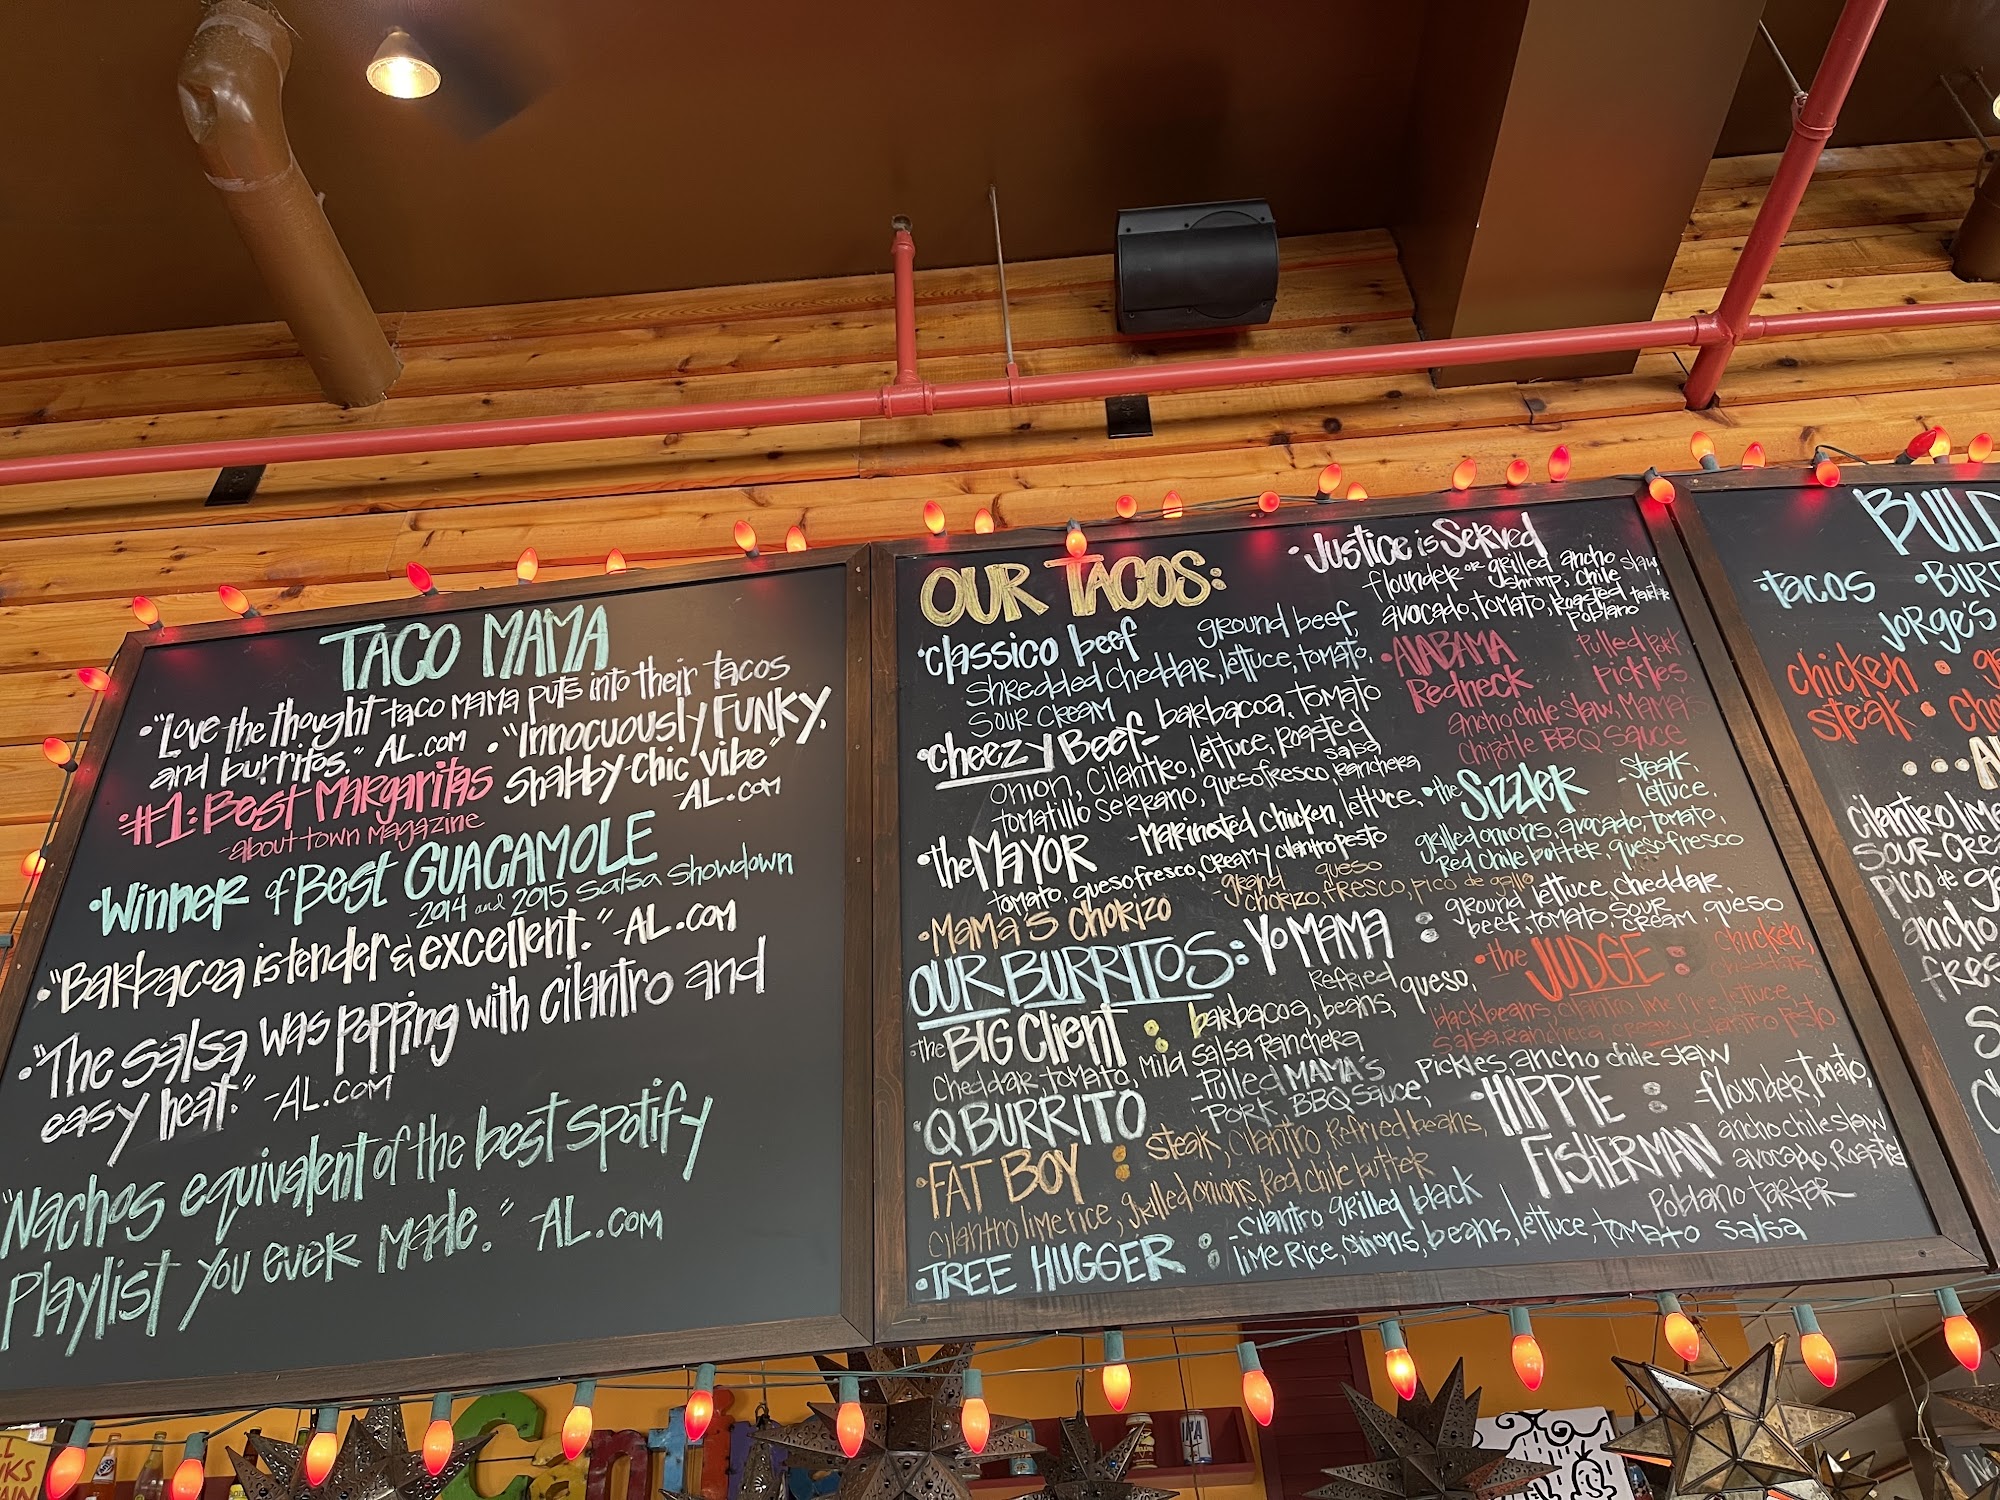 TACO MAMA
• "Love the thought taco mama puts into their tacos
and burritos." AL.com • "Innocuously FUNKY,
shabby-chic vibe"
-AL.com
• #1: Best Margaritas
-about town magazine
• Winner of Best GUACAMOLE
-2014 and 2015 salsa showdown
• "Barbacoa is tender & excellent." -AL.com
• "The salsa was popping with cilantro and
easy heat." -AL.com
"Nachos equivalent of the best spotify
Playlist you ever made." -AL.com
OUR TACOS:
• classico beef ground beef,
shredded cheddar, lettuce, tomato,
sour cream
• cheezy Beef - barbacoa, tomato
onion, cilantro, lettuce, roasted
tomatillo serrano, queso fresco, salsa ranchera
• the MAYOR - marinated chicken, lettuce,
tomato, queso fresco, creamy cilantro pesto
• Mama's Chorizo - grand chorizo, queso fresco, pico de gallo
• Justice is Served
flounder or grilled shrimp, ancho chile slaw,
avocado, tomato, roasted poblano tartar
• Alabama Redneck Pulled Pork
pickles
ancho chile slaw, Mama's
chipotle BBQ sauce
• the Sizzler - steak,
lettuce,
grilled onions, avocado, tomato,
Red chile butter, queso fresco
OUR BURRITOS:
YO MAMA : ground beef, lettuce, cheddar, tomato, sour cream, queso
• the BIG Client : barbacoa, refried beans, queso,
cheddar, tomato, mild salsa ranchera
• Q BURRITO - Pulled Pork, MAMA'S BBQ sauce,
pickles, ancho chile slaw
• FAT BOY : steak, cilantro, refried beans,
cilantro lime rice, grilled onions, red chile butter
• TREE HUGGER : - cilantro lime rice, grilled onions, black beans, lettuce, tomato salsa
• the JUDGE : chicken,
cheddar,
black beans, cilantro lime rice, lettuce
salsa ranchera, creamy cilantro pesto
• HIPPIE FISHERMAN : - flounder, tomato,
ancho chile slaw
avocado, roasted
poblano tartar
BUILD
• tacos • BUR
Jorge's
chicken •
steak •
cilantro lime
sour cre
pico de ga
ancho
fres
Cantin
IPA